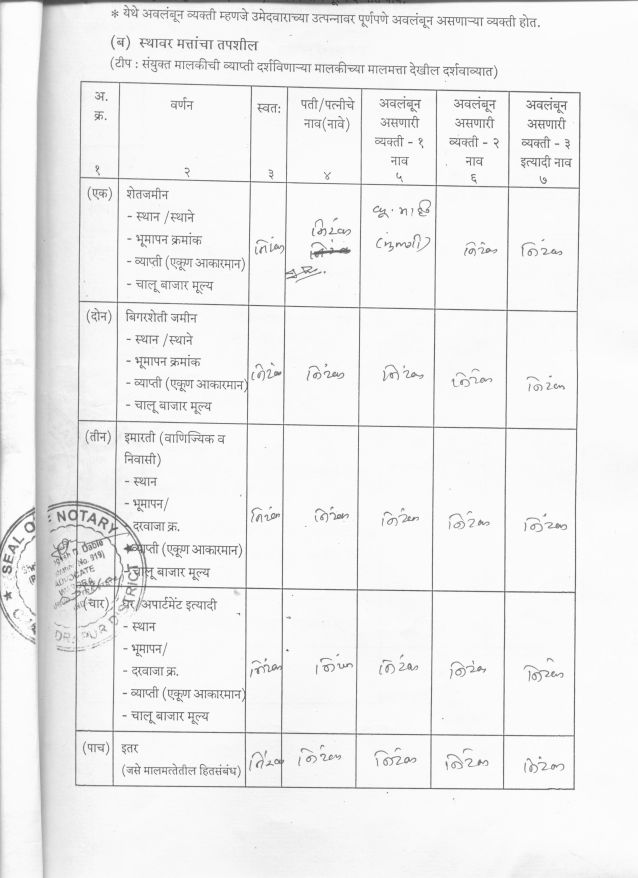 * येथे अवलंबून व्यक्ती म्हणजे उमेदवाराच्या उत्पन्नावर पूर्णपणे अवलंबून असणाऱ्या व्यक्ती होत.
(ब) स्थावर मत्तांचा तपशील
(टीप : संयुक्त मालकीची व्याप्ती दर्शविणाऱ्या मालकीच्या मालमत्ता देखील दर्शवाव्यात)
अ. क्र. वर्णन स्वतः पती/पत्नीचे नाव(नावे) अवलंबून असणारी व्यक्ती - १ नाव अवलंबून असणारी व्यक्ती - २ नाव अवलंबून असणारी व्यक्ती - ३ इत्यादी नाव
१ २ ३ ४ ५ ६ ७
(एक) शेतजमीन
- स्थान /स्थाने
- भूमापन क्रमांक निरंक निरंक निरंक निरंक
- व्याप्ती (एकूण आकारमान)
- चालू बाजार मूल्य
(दोन) बिगरशेती जमीन
- स्थान /स्थाने
- भूमापन क्रमांक
- व्याप्ती (एकूण आकारमान) निरंक निरंक निरंक निरंक निरंक
- चालू बाजार मूल्य
(तीन) इमारती (वाणिज्यिक व
निवासी)
- स्थान
- भूमापन/
- दरवाजा क्र. निरंक निरंक निरंक निरंक निरंक
- व्याप्ती (एकूण आकारमान)
- चालू बाजार मूल्य
SEAL OF NOTARY
ADVOCATE
DISTRICT
(चार) घर/अपार्टमेंट इत्यादी
- स्थान
- भूमापन/
- दरवाजा क्र. निरंक निरंक निरंक निरंक निरंक
- व्याप्ती (एकूण आकारमान)
- चालू बाजार मूल्य
(पाच) इतर निरंक निरंक निरंक निरंक निरंक
(जसे मालमत्तेतील हितसंबंध)